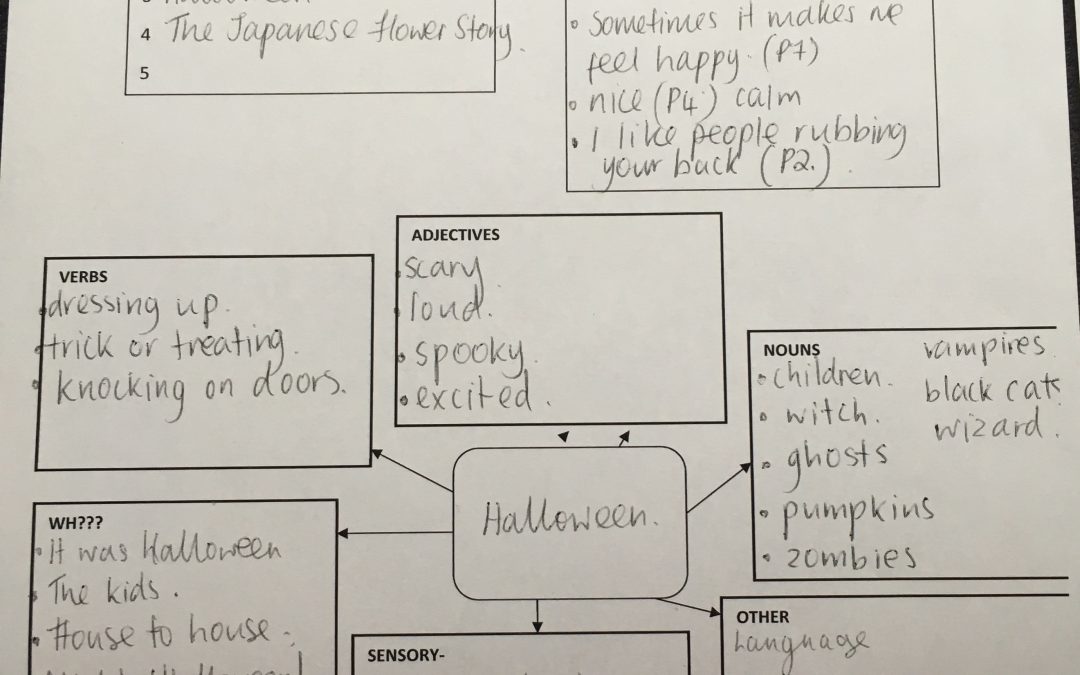 Halloween
4 The Japanese flower Story.
5
• Sometimes it makes me
feel happy. (P7)
• nice (P4) calm
• I like people rubbing
your back (P2.).
ADJECTIVES
• scary
• loud.
• spooky.
• excited.
VERBS
• dressing up.
• trick or treating.
• knocking on doors.
NOUNS
• children.
• witch.
• ghosts
• pumpkins
• zombies
vampires
black cats
wizard.
Halloween.
WH???
• It was Halloween
• The kids.
• House to house -
SENSORY-
OTHER
Language